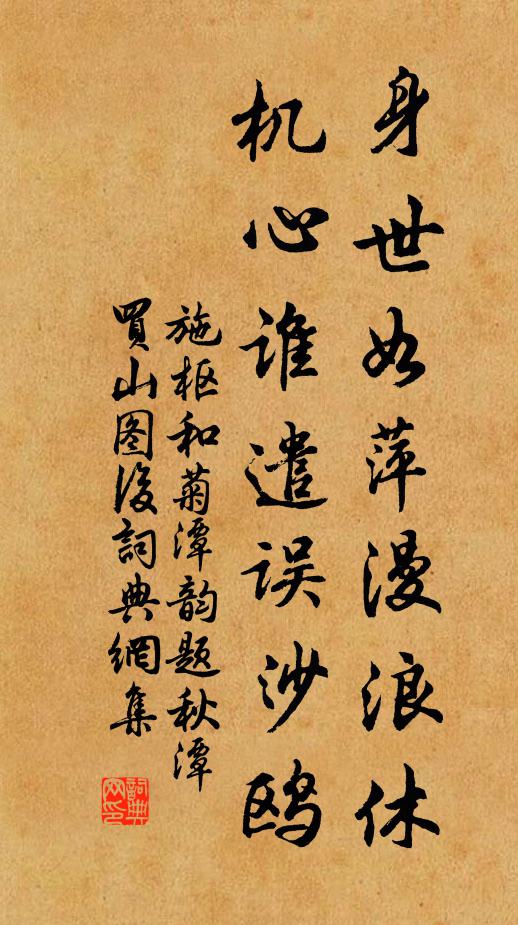 身世如萍漫浪休
机心谁遣误沙鸥
施枢和菊潭韵题秋潭
買山图後詞典網集
詞典
网印